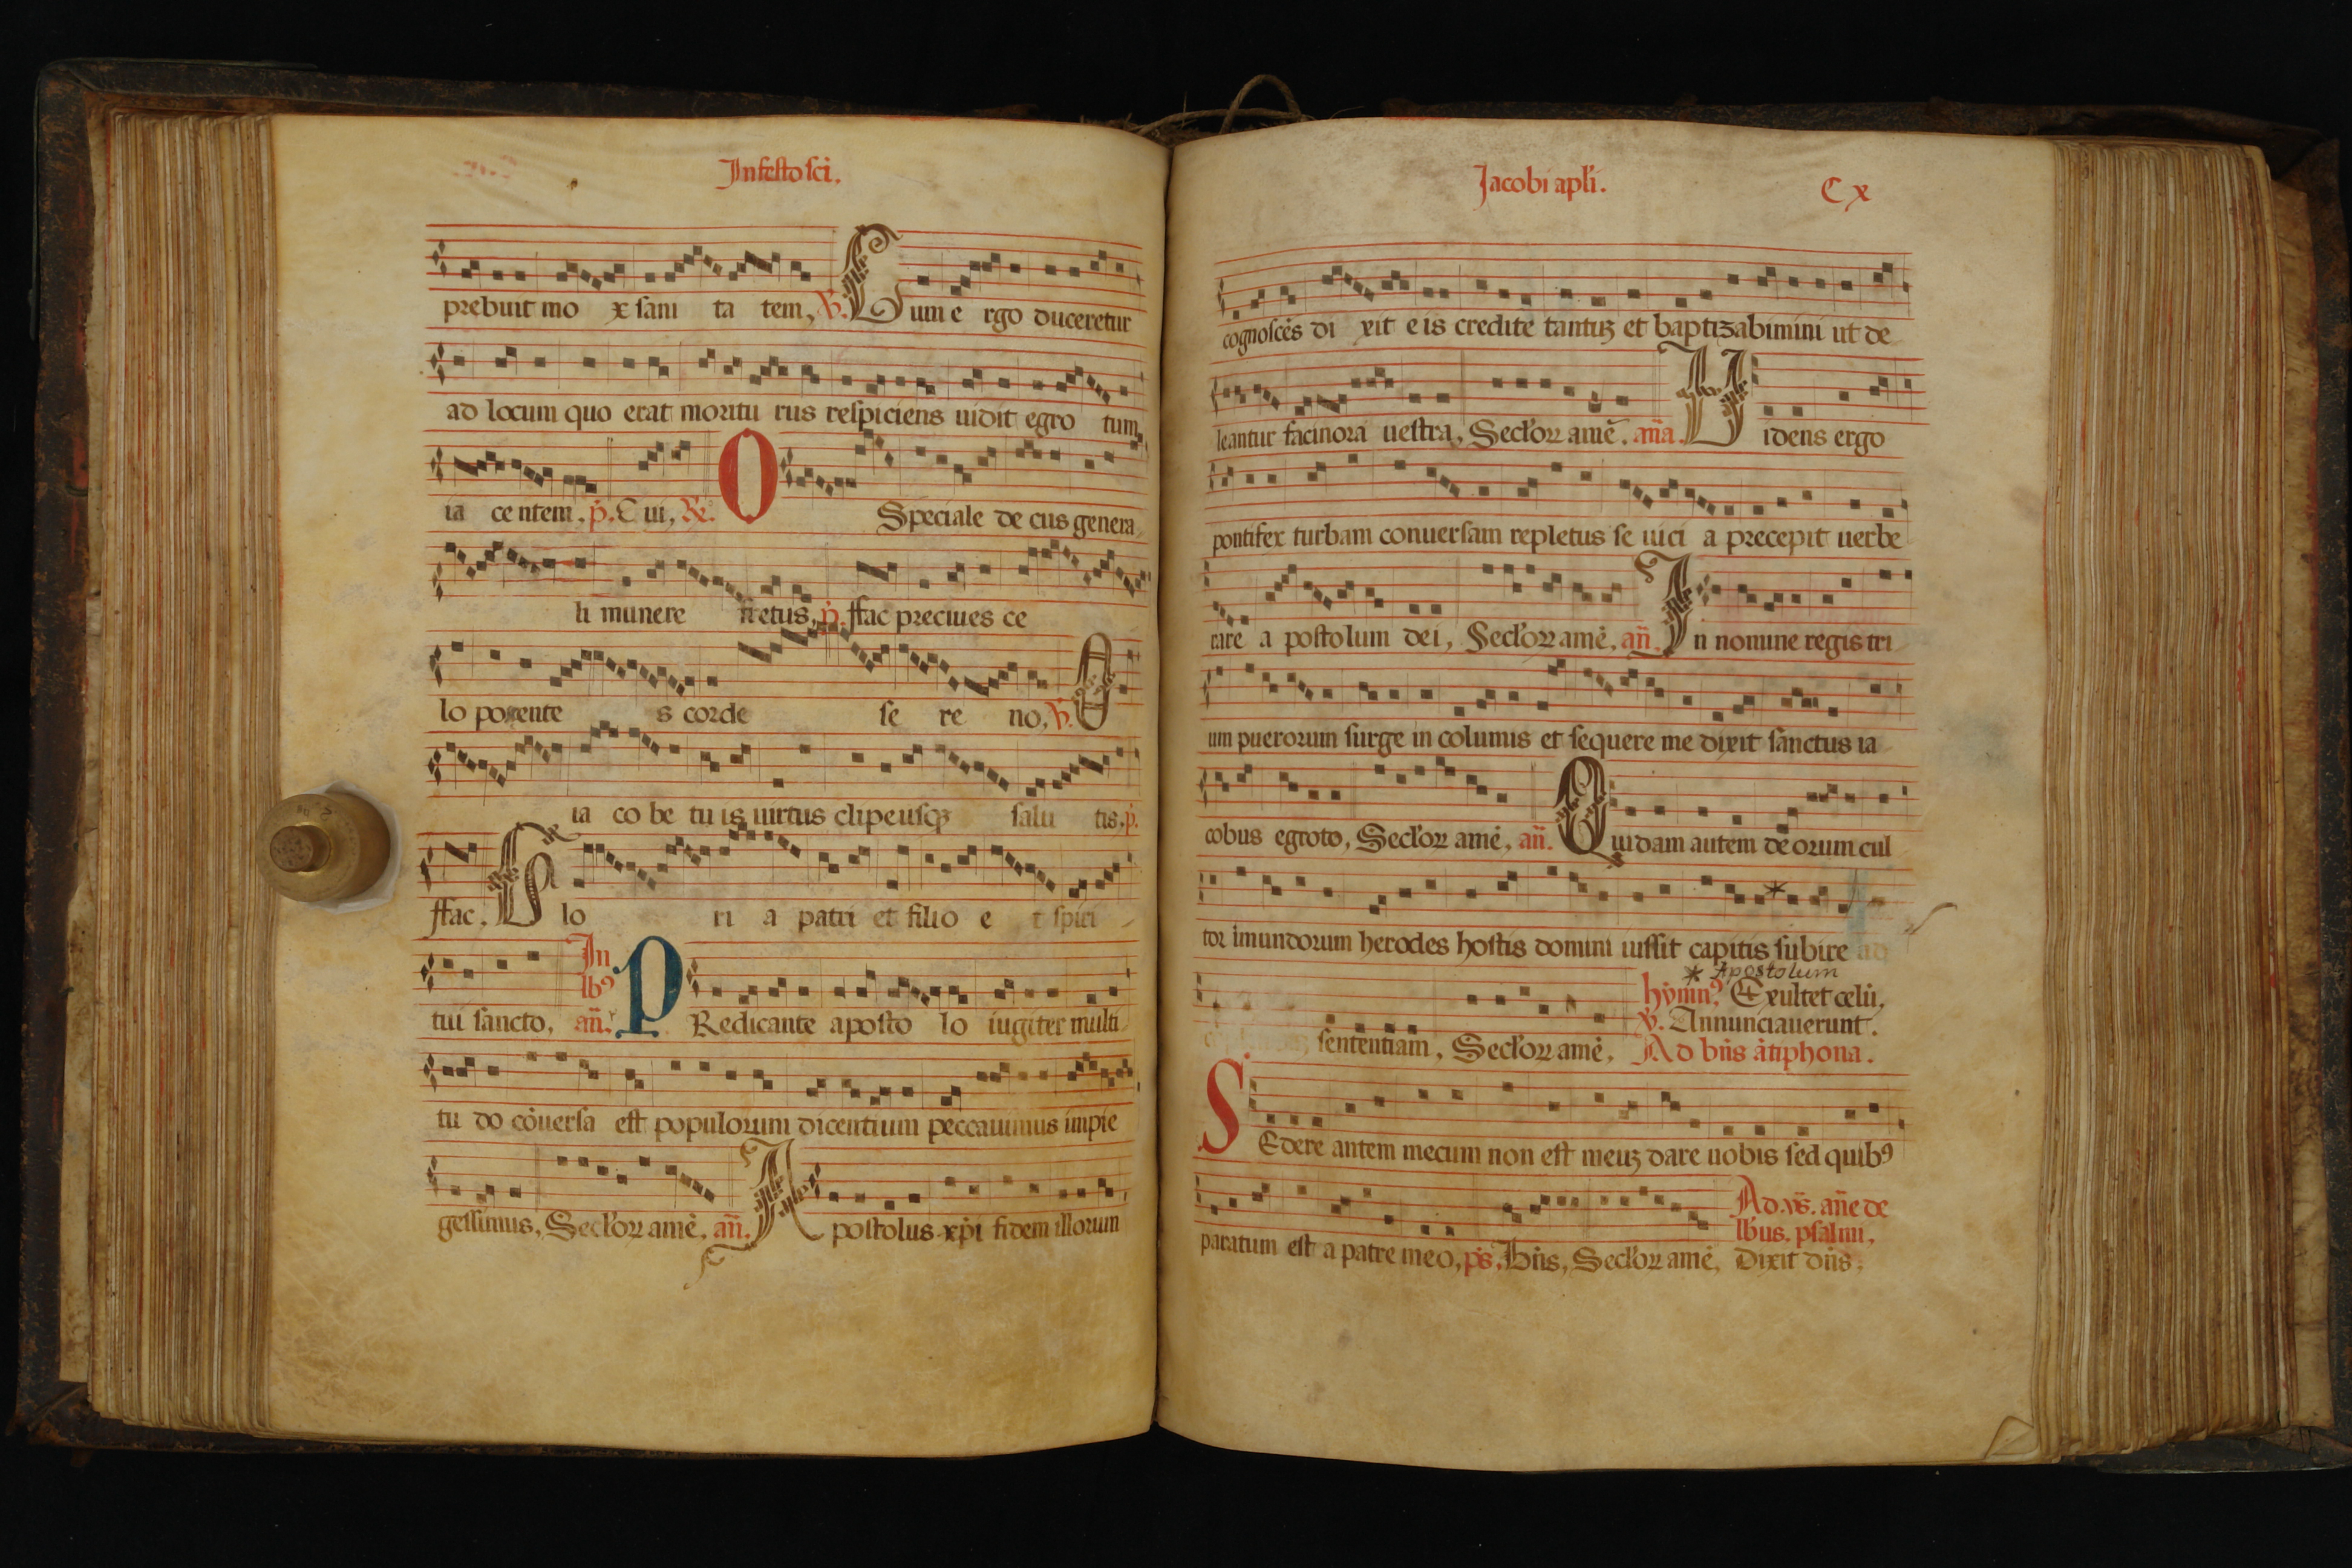 In festo sci.
prebuit mo x sani ta tem, V. Cum e rgo duceretur
ad locum quo erat moritu rus respiciens uidit egro tum
ia centem. p. Cui, R. O Speciale de cus genera
li munere fretus, p. ffac preciues ce
lo poscente s corde se re no, V. O
ia co be tu is uirtus clipeusqz salu tis. p.
ffac. Glo ri a patri et filio e t spiri
tui sancto, In lb9 an. PRedicante aposto lo iugiter multi
tu do cōuersa est populorum dicentium peccauimus impie
gessimus, Seclor amē. an. Apostolus xpi fidem illorum
Jacobi apli. Cx
cognoscēs di xit eis credite tantuz et baptizabimini ut de
leantur facinora uestra, Seclor amē. ana. Uidens ergo
pontifex turbam conuersam repletus se uici a precepit uerbe
rare a postolum dei, Seclor amē, an. In nomine regis tri
um puerorum surge in columis et sequere me dixit sanctus ia
cobus egroto, Seclor amē, an. Quidam autem deorum cul
tor imundorum herodes hostis domini iussit capitis subire
* Apostolum
hymn9. Exultet celū.
V. Annunciauerunt.
sententiam, Seclor amē, Ad bn̄s ātiphona.
SEdere autem mecum non est meuz dare uobis sed quib9
Ad vs. ane de
lbus. psalmi,
paratum est a patre meo, ps. Bn̄s, Seclor amē, Dixit dn̄s.